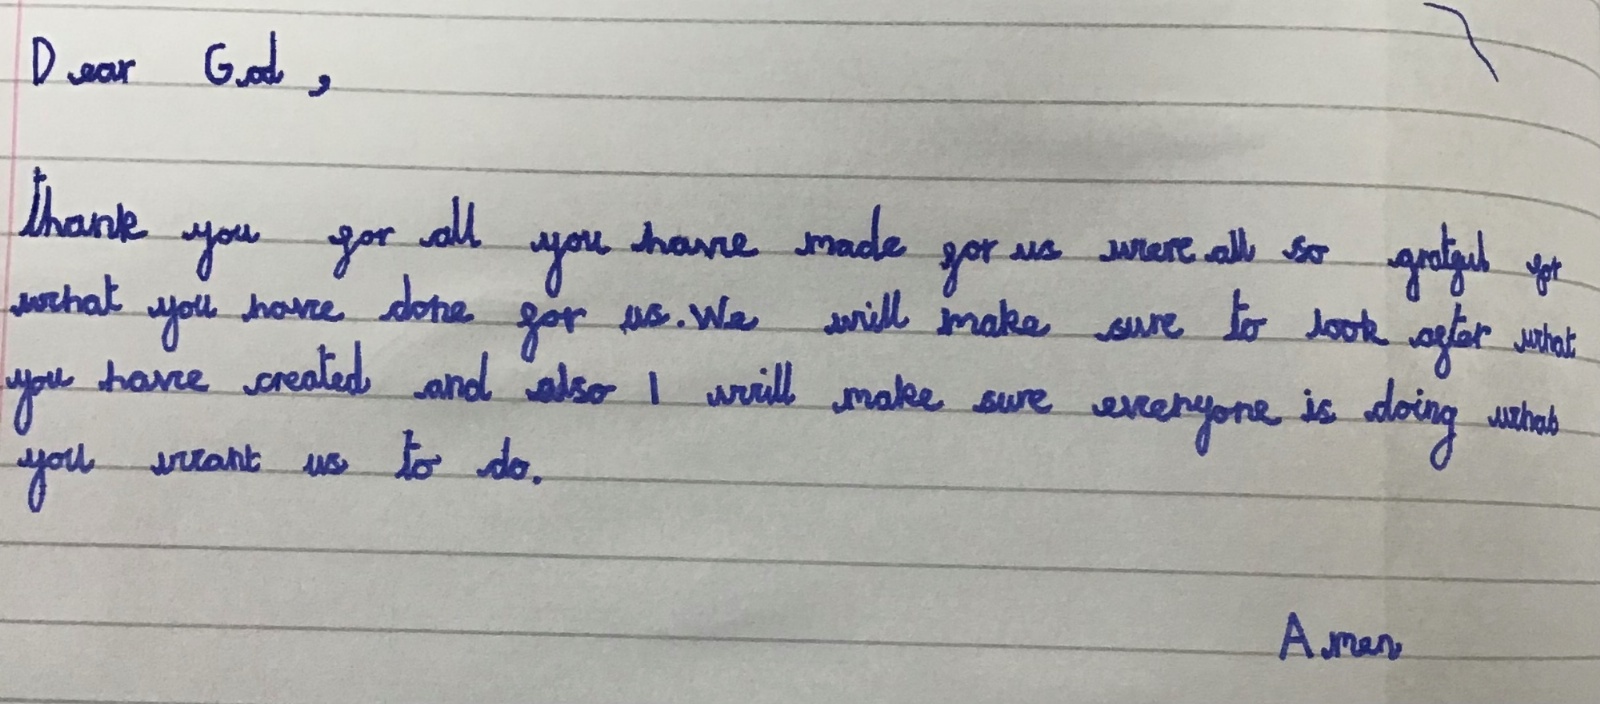 Dear God,
Thank you for all you have made for us were all so gratful for
what you have done for us. We will make sure to look after what
you have created and also I will make sure everyone is doing what
you want us to do.
Amen